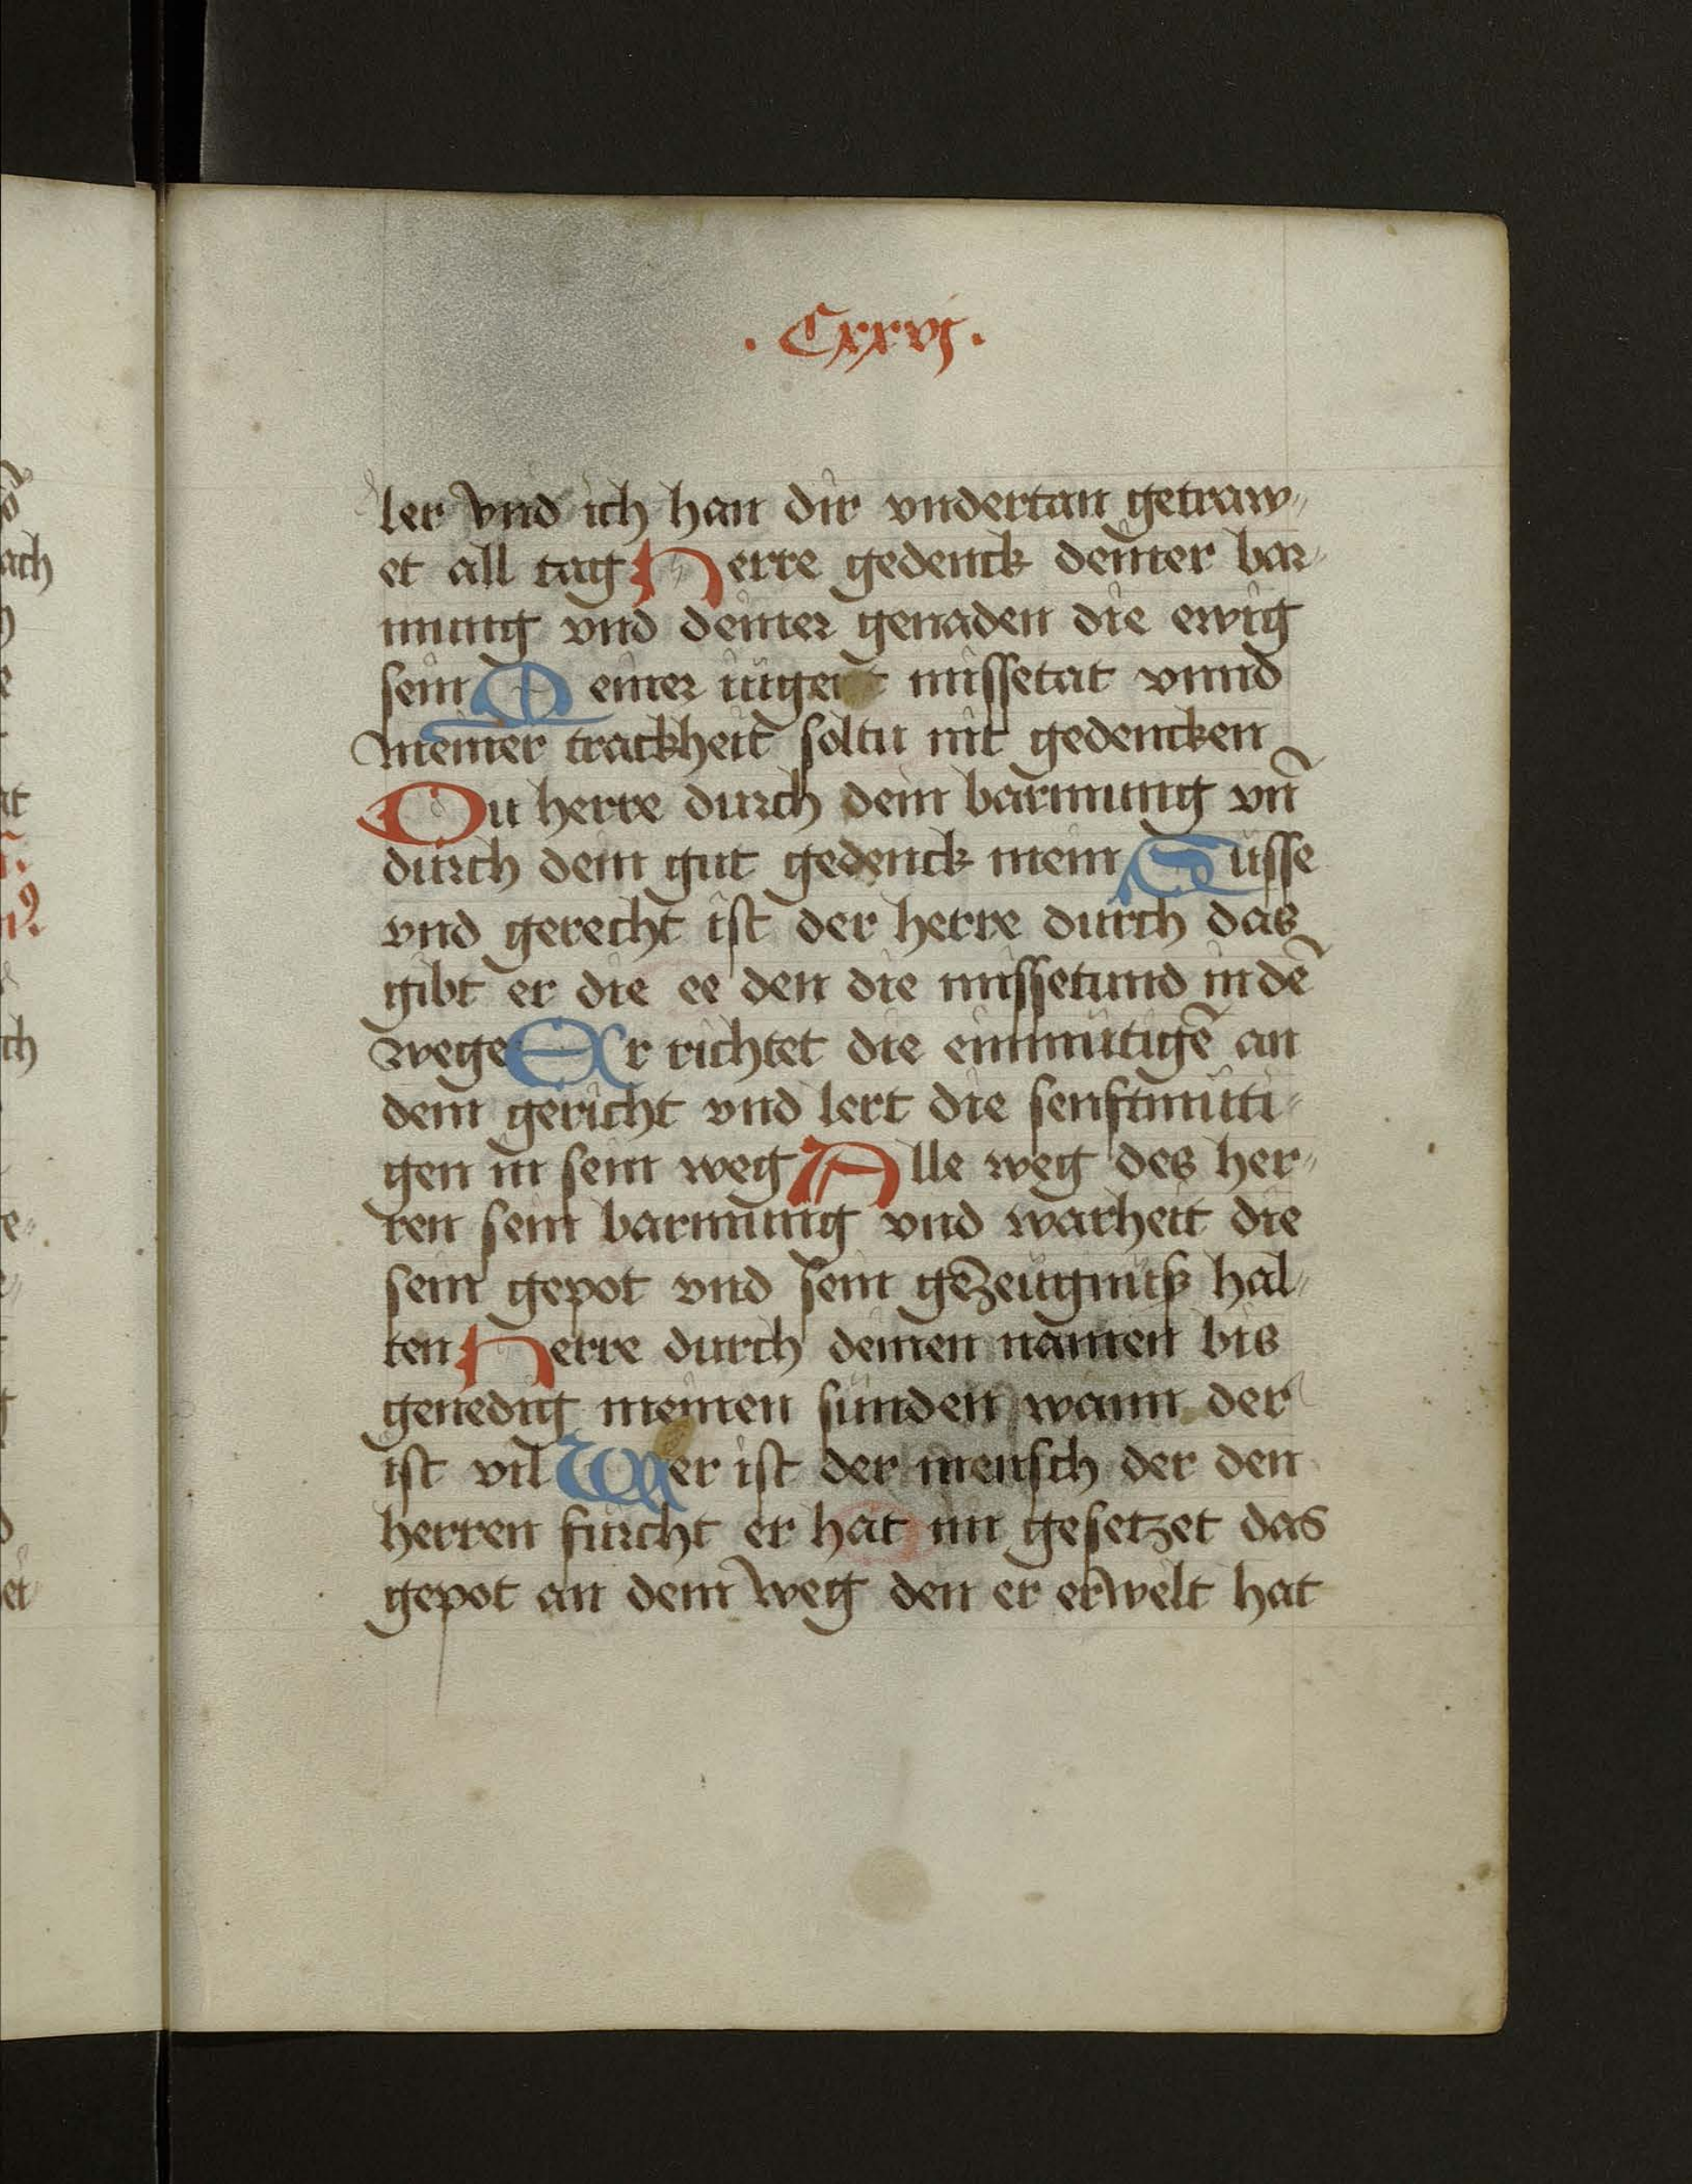 . Cxxvj .
ler vnd ich han dir vndertan getraw„
et all tag Herre gedenck deiner bar„
mung vnd deiner genaden die ewig
sein Meiner iuge missetat vnnd
meiner trackheit soltu nit gedencken
Du herre durch dein barmung vn̄
durch dein gut gedenck mein Süsse
vnd gerecht ist der herre durch das
gibt er die ee den die missetund in dē
wege Er richtet die einmütigē an
dem gericht vnd lert die senftmüti„
gen in sein weg Alle weg des her„
ren sein barmung vnd warheit die
sein gepot vnd sein gezeügnüß hal„
ten Herre durch deinen namen bis
genedig meinen sünden wann der
ist vil Wer ist der mensch der den
herren fürcht er hat im gesetzet das
gepot an dem weg den er erwelt hat